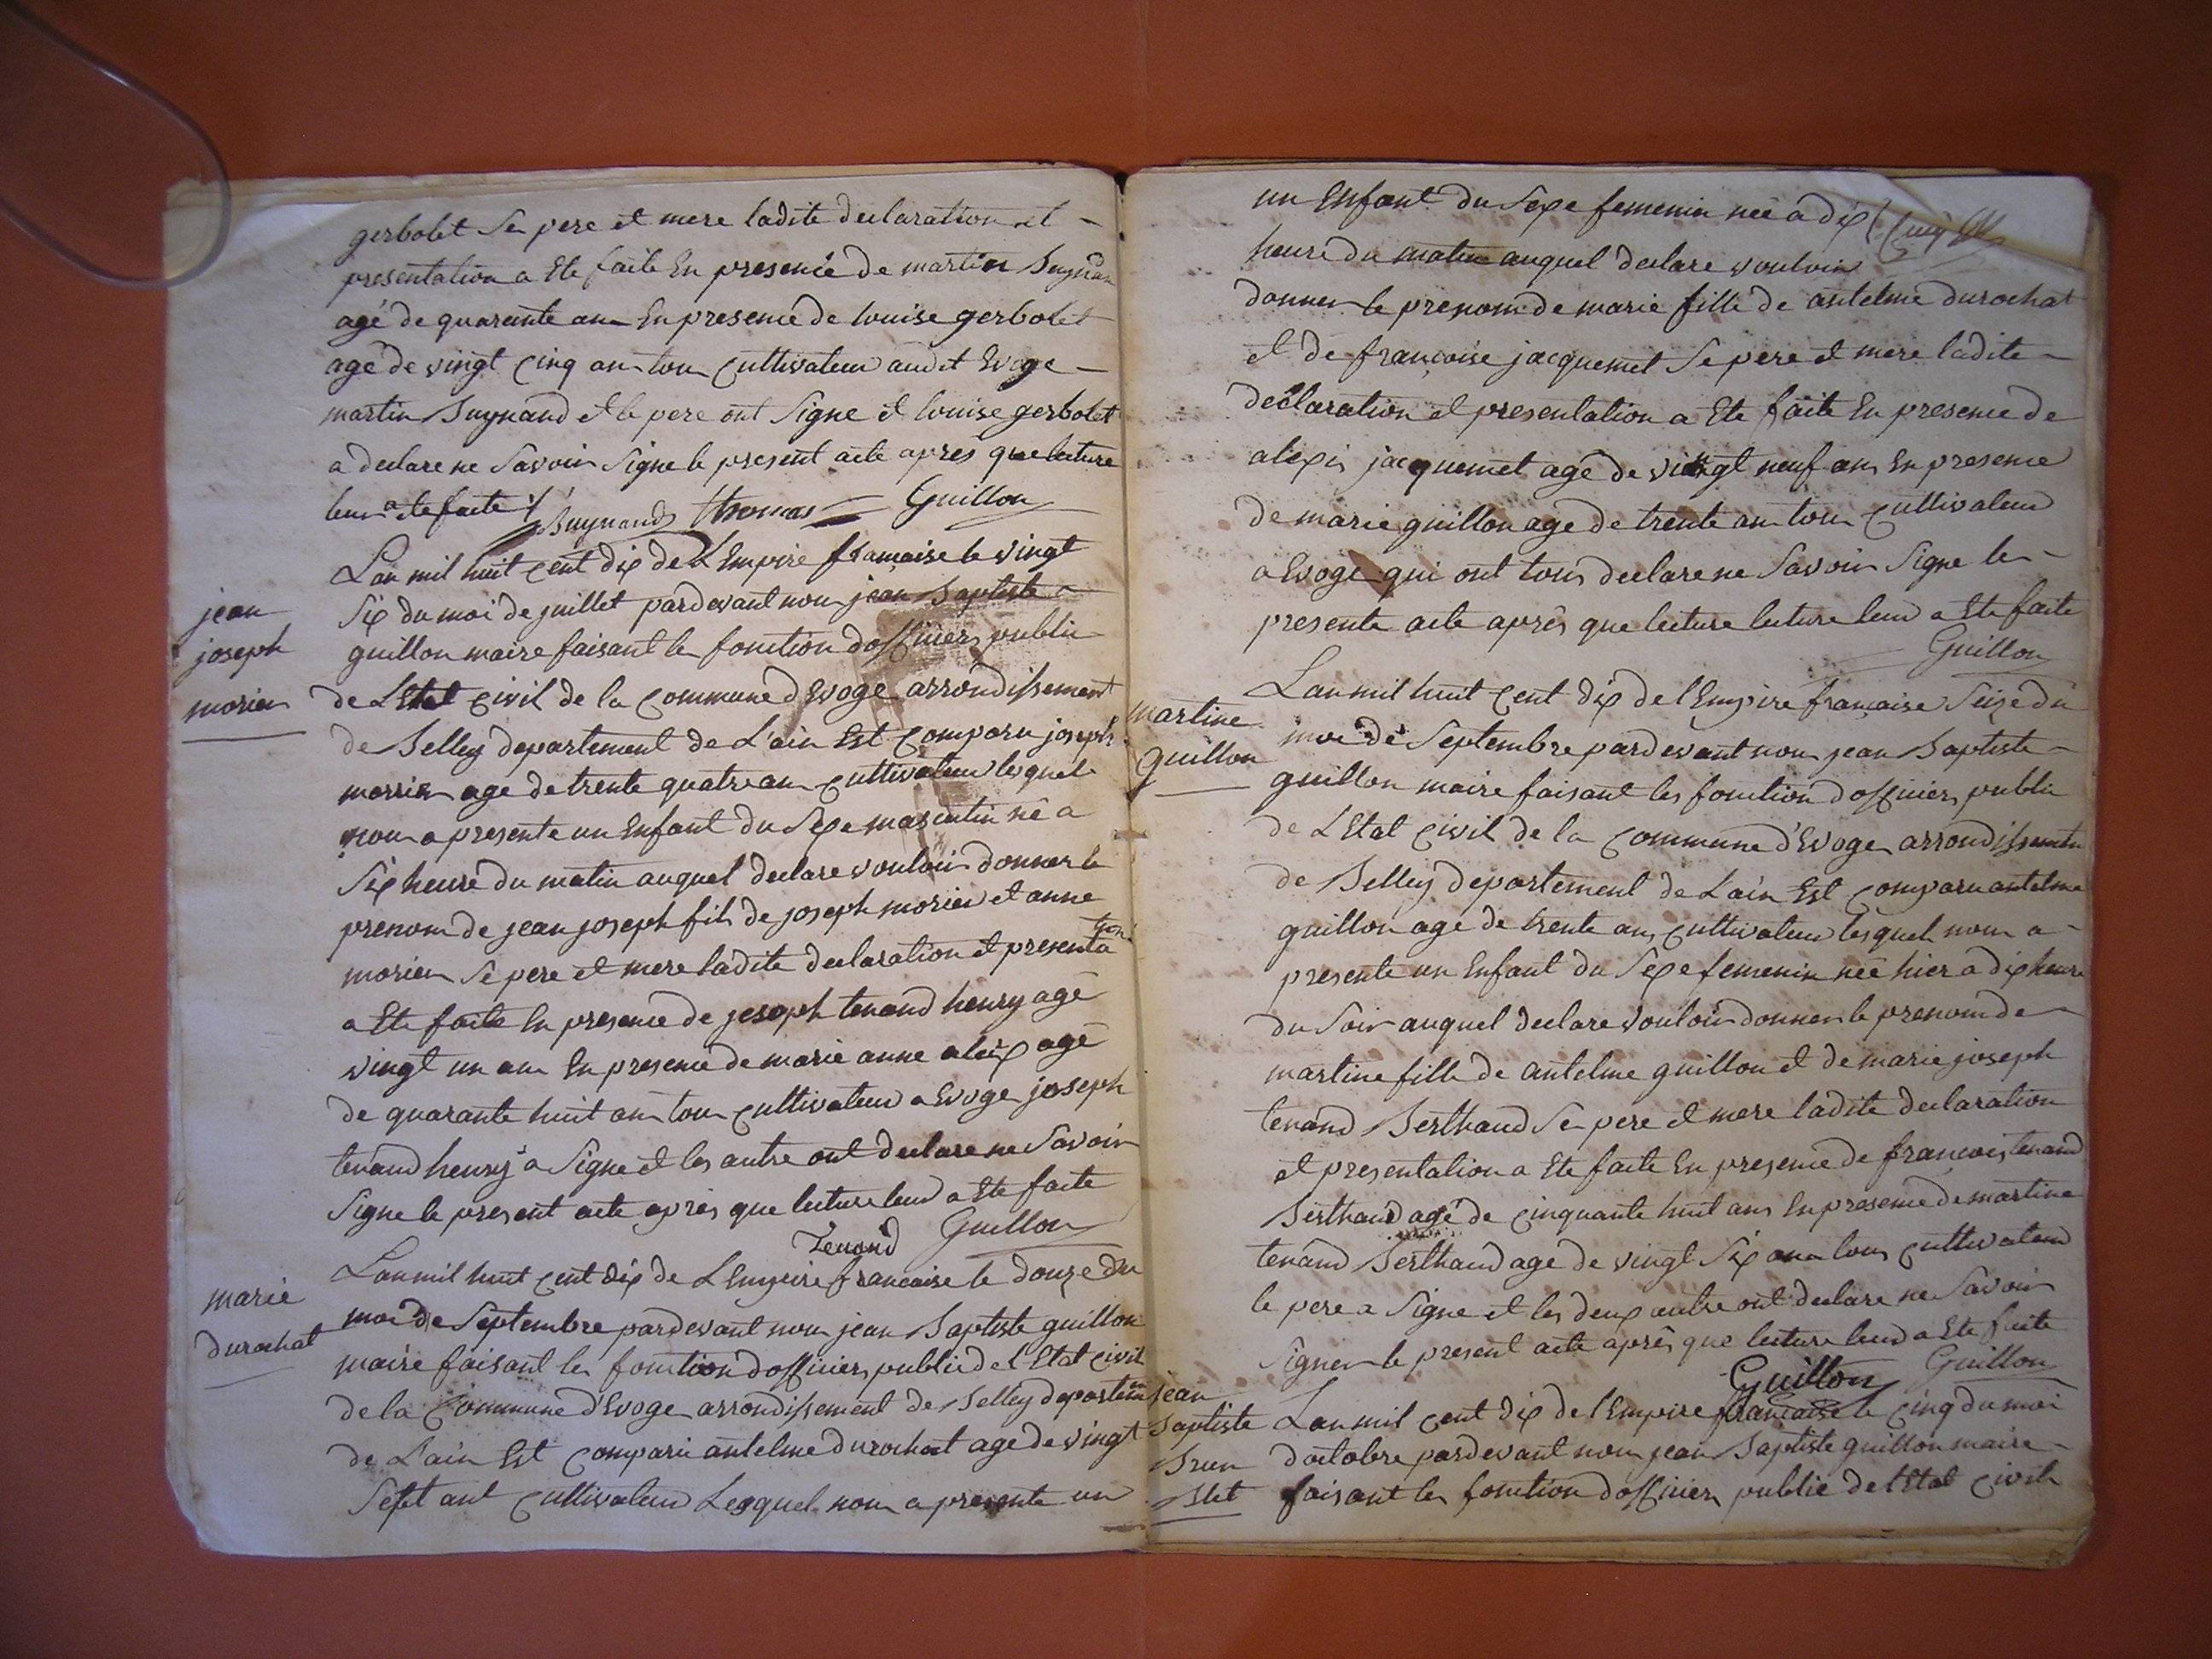 gerbolet Se pere et mere ladite declaration et
presentation a Ete faite En presence de martin Buynand
agé de quarente ans En presence de louise gerbolet
agé de vingt cinq ans tous cultivateur audit Evoge
martin Buynand et le pere ont Signe et louise gerbolet
a declare ne Savoir Signe le present acte après que lecture
leur a ete faite
Buynand thomas Guillon
jean
joseph
morier
Lan mil huit cent dix de L'Empire francaise le vingt
Six du moi de juillet pardevant nous jean Baptiste
guillon maire faisant les fonction dofficiers public
de L'Etat civil de la commune d'Evoge arrondissement
de Belley departement de L'ain Est comparu joseph
morrier age de trente quatre ans cultivateur lesquel
nous a presente un Enfant du Sexe masculin né a
Six heure du matin auquel declare vouloir donner le
prenom de jean joseph fils de joseph morier et anne
morier Se pere et mere ladite declaration et presentation
a Ete faite En presence de joseph tenand henry agé
vingt un ans En presence de marie anne aleix agé
de quarante huit ans tous cultivateur a Evoge joseph
tenand henry a Signe et les autre ont declare ne Savoir
Signe le present acte après que lecture leur a Ete faite
Tenand Guillon
marie
durochat
Lan mil huit cent dix de L'Empire francaise le douze du
moi de Septembre pardevant nous jean Baptiste guillon
maire faisant les fonction dofficiers public de l'Etat civil
de la Commune d'Evoge arrondissement de Belley departem
de L'ain Est comparu antelme durochat age de vingt
Sept ant cultivateur Lesquel nous a presente un
un Enfant du Sexe femenin née a dix
heure du matin auquel declare vouloir
donner le prenom de marie fille de antelme durochat
et de françoise jacquemet Se pere et mere ladite
declaration et presentation a Ete faite En presence de
alexis jacquemet agé de vingt neuf ans En presence
de marie guillon age de trente ans tous cultivateur
a Evoge qui ont tous declare ne Savoir Signe le
presente acte après que lecture lecture leur a Ete faite
Guillon
martine
guillon
Lan mil huit cent dix de l'Empire française Seize du
moi de Septembre pardevant nous jean Baptiste
guillon maire faisant les fonction dofficiers public
de L'Etat civil de la Commune d'Evoge arrondissement
de Belley departement de L'ain Est comparu antelme
guillon age de trente ans cultivateur lesquel nous a
presente un Enfant du Sexe femenin née hier a dix heure
du Soir auquel declare vouloir donner le prenom de
martine fille de antelme guillon et de marie joseph
tenand Berthaud Se pere et mere ladite declaration
et presentation a Ete faite En presence de francois tenand
Berthaud agé de cinquante huit ans En presence de martine
tenand Berthaud age de vingt Six ans tous cultivateur
le pere a Signe et les deux autre ont declare ne Savoir
Signer le present acte après que lecture leur a Ete faite
Guillon Guillon
jean
Baptiste
Brun
Lan mil cent dix de l'Empire française le cinq du moi
doctobre pardevant nous jean Baptiste guillon maire
faisant les fonction dofficiers public de l'Etat civil